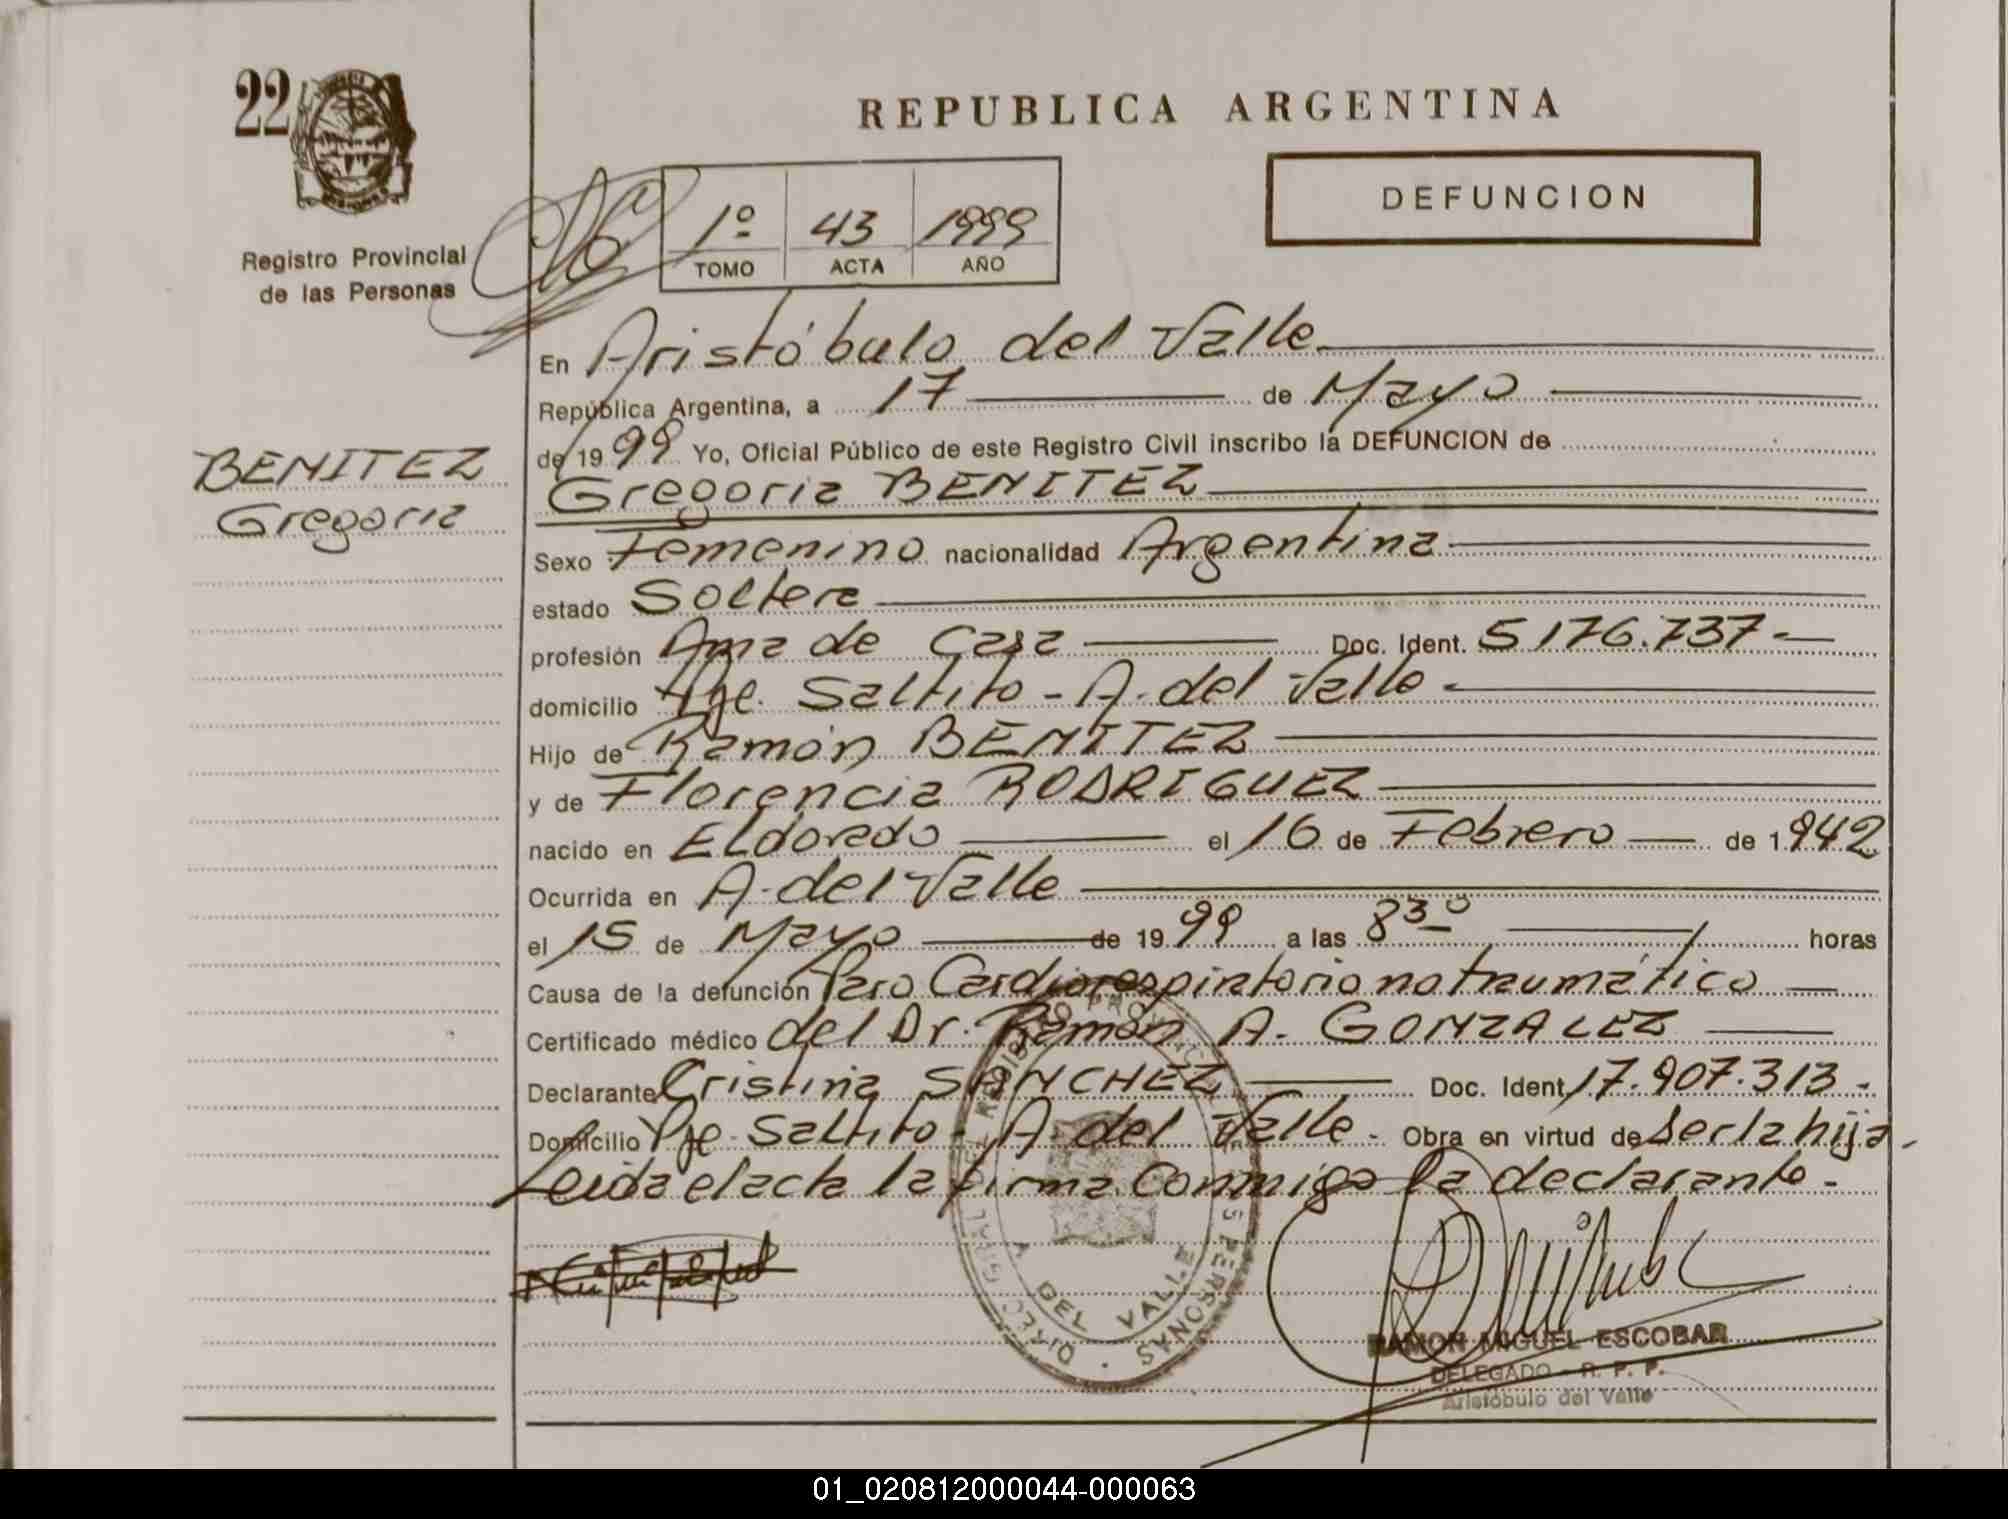 22
REPUBLICA ARGENTINA
DEFUNCION
1º 43 1999
TOMO ACTA AÑO
Registro Provincial
de las Personas
En Aristóbulo del Valle
República Argentina, a 17 de Mayo
de 1999 Yo, Oficial Público de este Registro Civil inscribo la DEFUNCION de
BENITEZ
Gregoria
Gregoria BENITEZ
Sexo Femenino nacionalidad Argentina
estado Soltera
profesión Ama de Casa Doc. Ident. 5.176.737-
domicilio Pje. Saltito - A. del Valle -
Hijo de Ramón BENITEZ
y de Florencia RODRIGUEZ
nacido en Eldorado el 16 de Febrero de 1942
Ocurrida en A. del Valle
el 15 de Mayo de 1999 a las 8 30 horas
Causa de la defunción Paro Cardiorespiratorio no traumático
Certificado médico del Dr. Ramón A. GONZALEZ
Declarante Cristina SANCHEZ Doc. Ident. 17.907.313-
Domicilio Pje. Saltito - A. del Valle - Obra en virtud de ser la hija.
Leida el acta la firma conmigo la declarante-
DIREC GRAL DEL REGISTRO PROVINCIAL DE LAS PERSONAS
A DEL VALLE
RAMON MIGUEL ESCOBAR
DELEGADO - R. P. P.
Aristóbulo del Valle
01_020812000044-000063